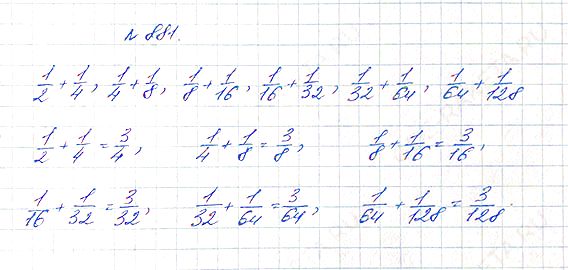 № 881.
1/2 + 1/4, 1/4 + 1/8, 1/8 + 1/16, 1/16 + 1/32, 1/32 + 1/64, 1/64 + 1/128
1/2 + 1/4 = 3/4, 1/4 + 1/8 = 3/8, 1/8 + 1/16 = 3/16,
1/16 + 1/32 = 3/32, 1/32 + 1/64 = 3/64, 1/64 + 1/128 = 3/128.